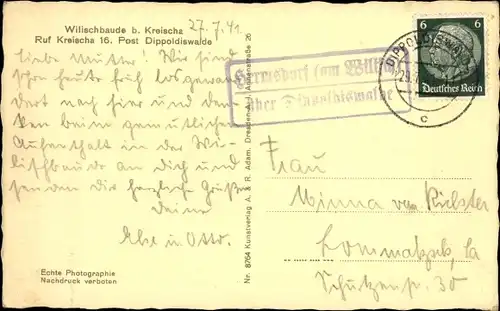 Wilischbaude b. Kreischa
Ruf Kreischa 16. Post Dippoldiswalde
27.7.41.
Liebe Mutter! Wir sind
schon heute früh losgewan-
dert nach hier und den-
ken beim gemütlichen
Aufenthalt in der Wi-
lischbaude an Dich und
senden dir herzliche Grüße
deine
Else u. Otto.
Echte Photographie
Nachdruck verboten
Nr. 8764 Kunstverlag A. & R. Adam, Dresden-A. 26
Hermsdorf (am Wilisch)
über Dippoldiswalde
DIPPOLDISWALDE
c
6 6
Deutsches Reich
Frau
Minna
Lommatzsch, Sa
Schützenstr. 30